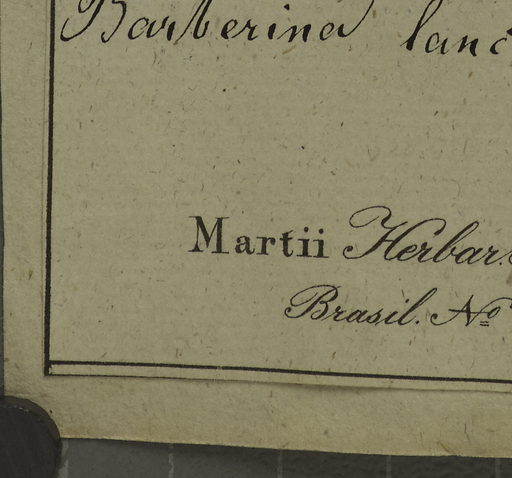 Barberina lanc
Martii Herbar.
Brasil. No